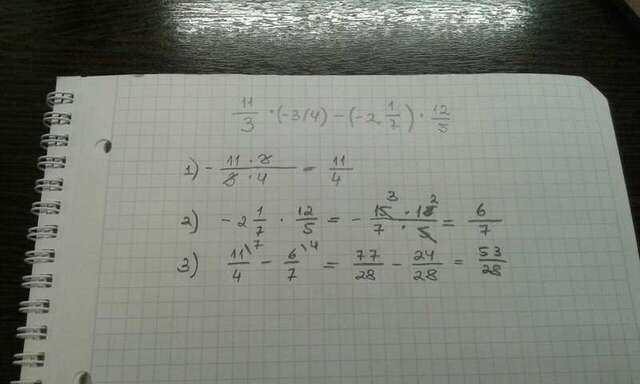 11/3 · (-3/4) - (-2 1/7) · 12/5
1) - 11·3/3·4 = 11/4
2) -2 1/7 · 12/5 = - 15³·12²/7·5 = 6/7
3) 11\7/4 - 6\4/7 = 77/28 - 24/28 = 53/28